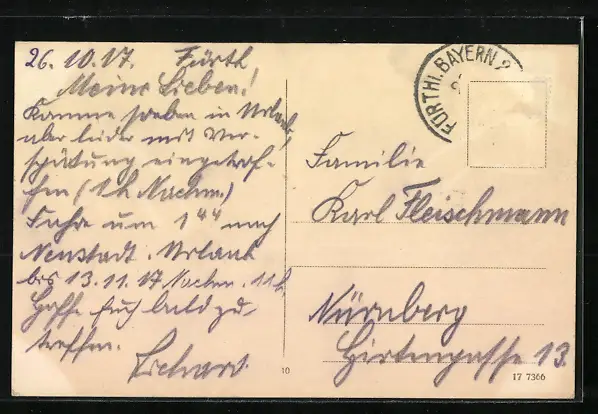 26.10.17. Fürth,
Meine Lieben!
Komme soeben in Urlaub,
aber leider mit Ver-
spätung eingetrof-
fen (1 h Nachm.)
Fahre um 1⁴⁴ nach
Neustadt. Urlaub
bis 13.11.17 Nachm. 11 h.
Hoffe Euch bald zu
treffen.
Richard.
FÜRTH I. BAYERN 2
Familie
Karl Fleischmann
Nürnberg
Hirtengasse 13.
10
17 7366